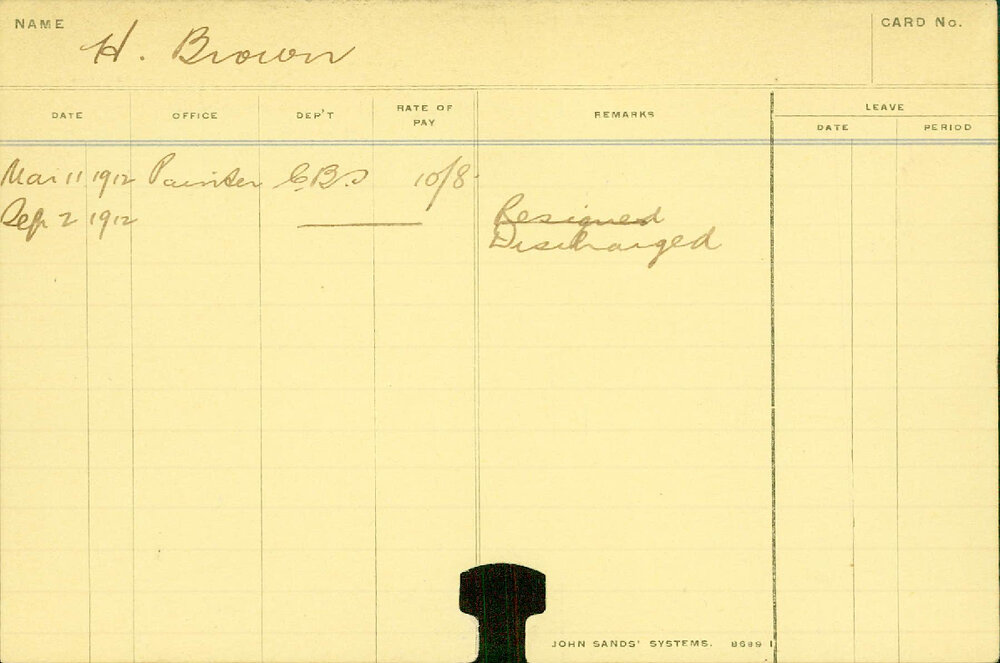 NAME H. Brown CARD No.
DATE OFFICE DEP'T RATE OF PAY REMARKS LEAVE
DATE PERIOD
Mar 11 1912 Painter C.B.S 10/8
Sep 2 1912 Resigned
Discharged
JOHN SANDS' SYSTEMS. 8689